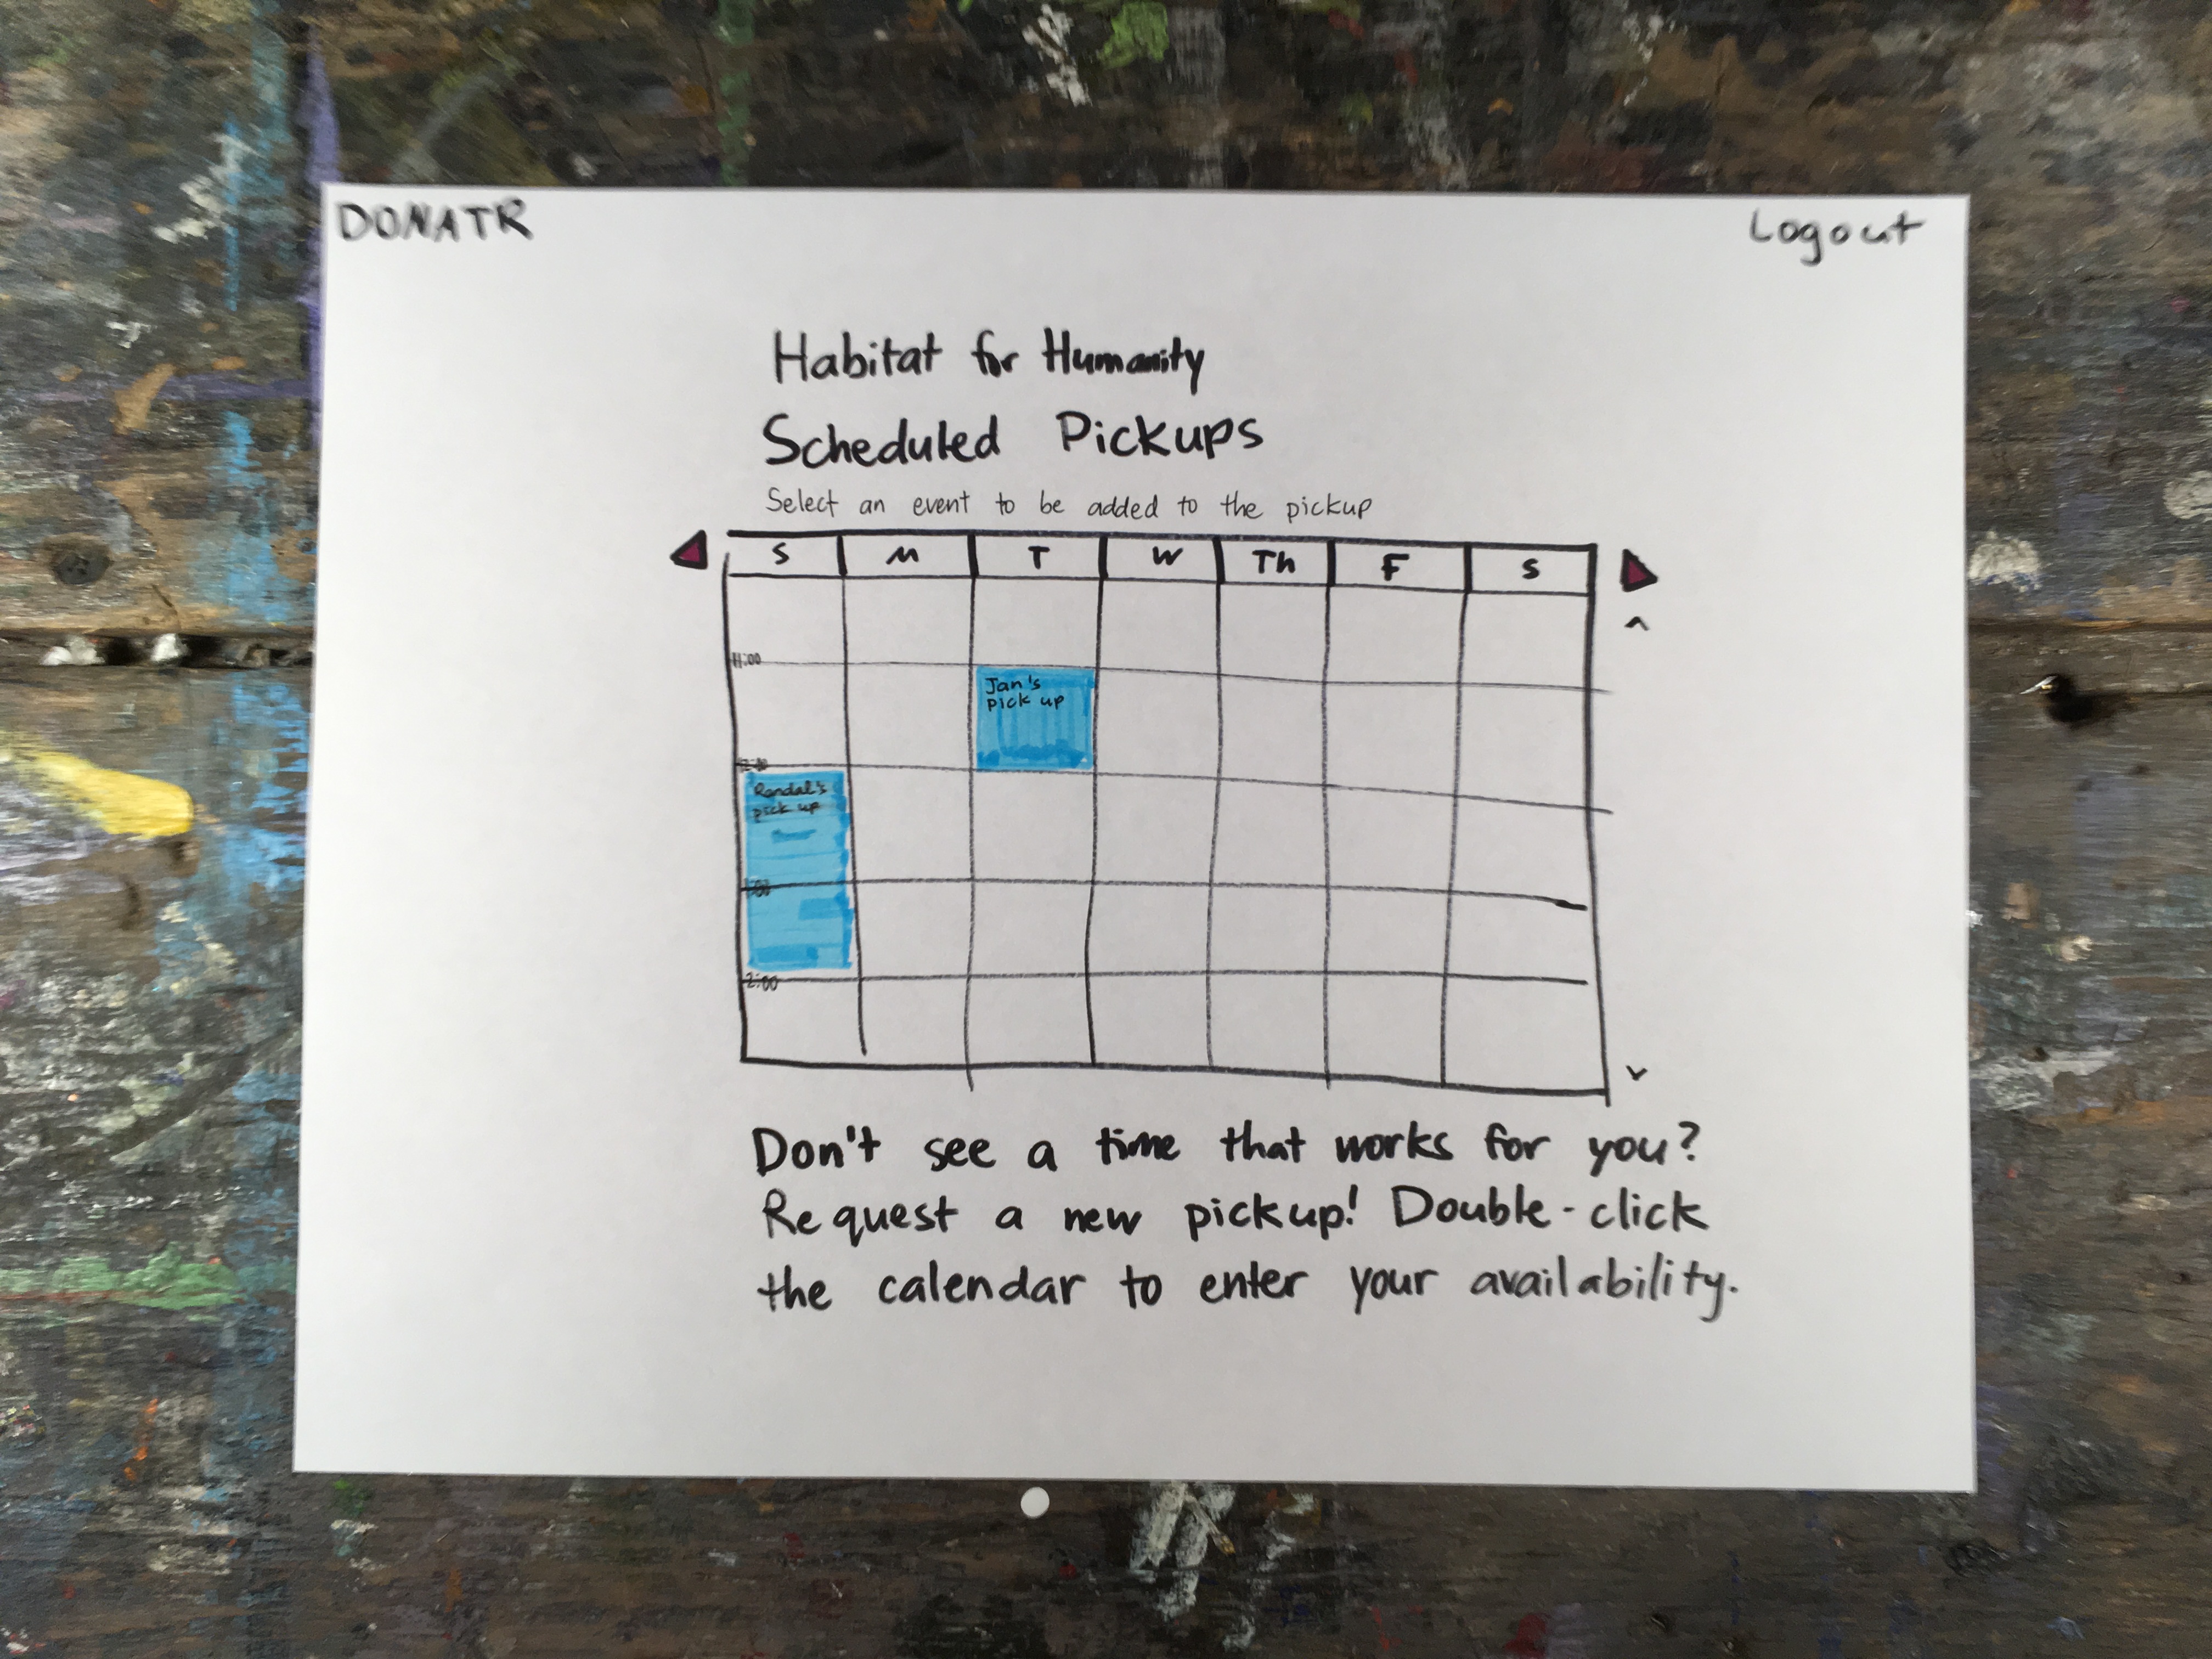 DONATR
Logout
Habitat for Humanity
Scheduled Pickups
Select an event to be added to the pickup
S M T W Th F S
11:00
Jan's
pick up
12:00
Randal's
pick up
1:00
2:00
Don't see a time that works for you?
Request a new pickup! Double-click
the calendar to enter your availability.